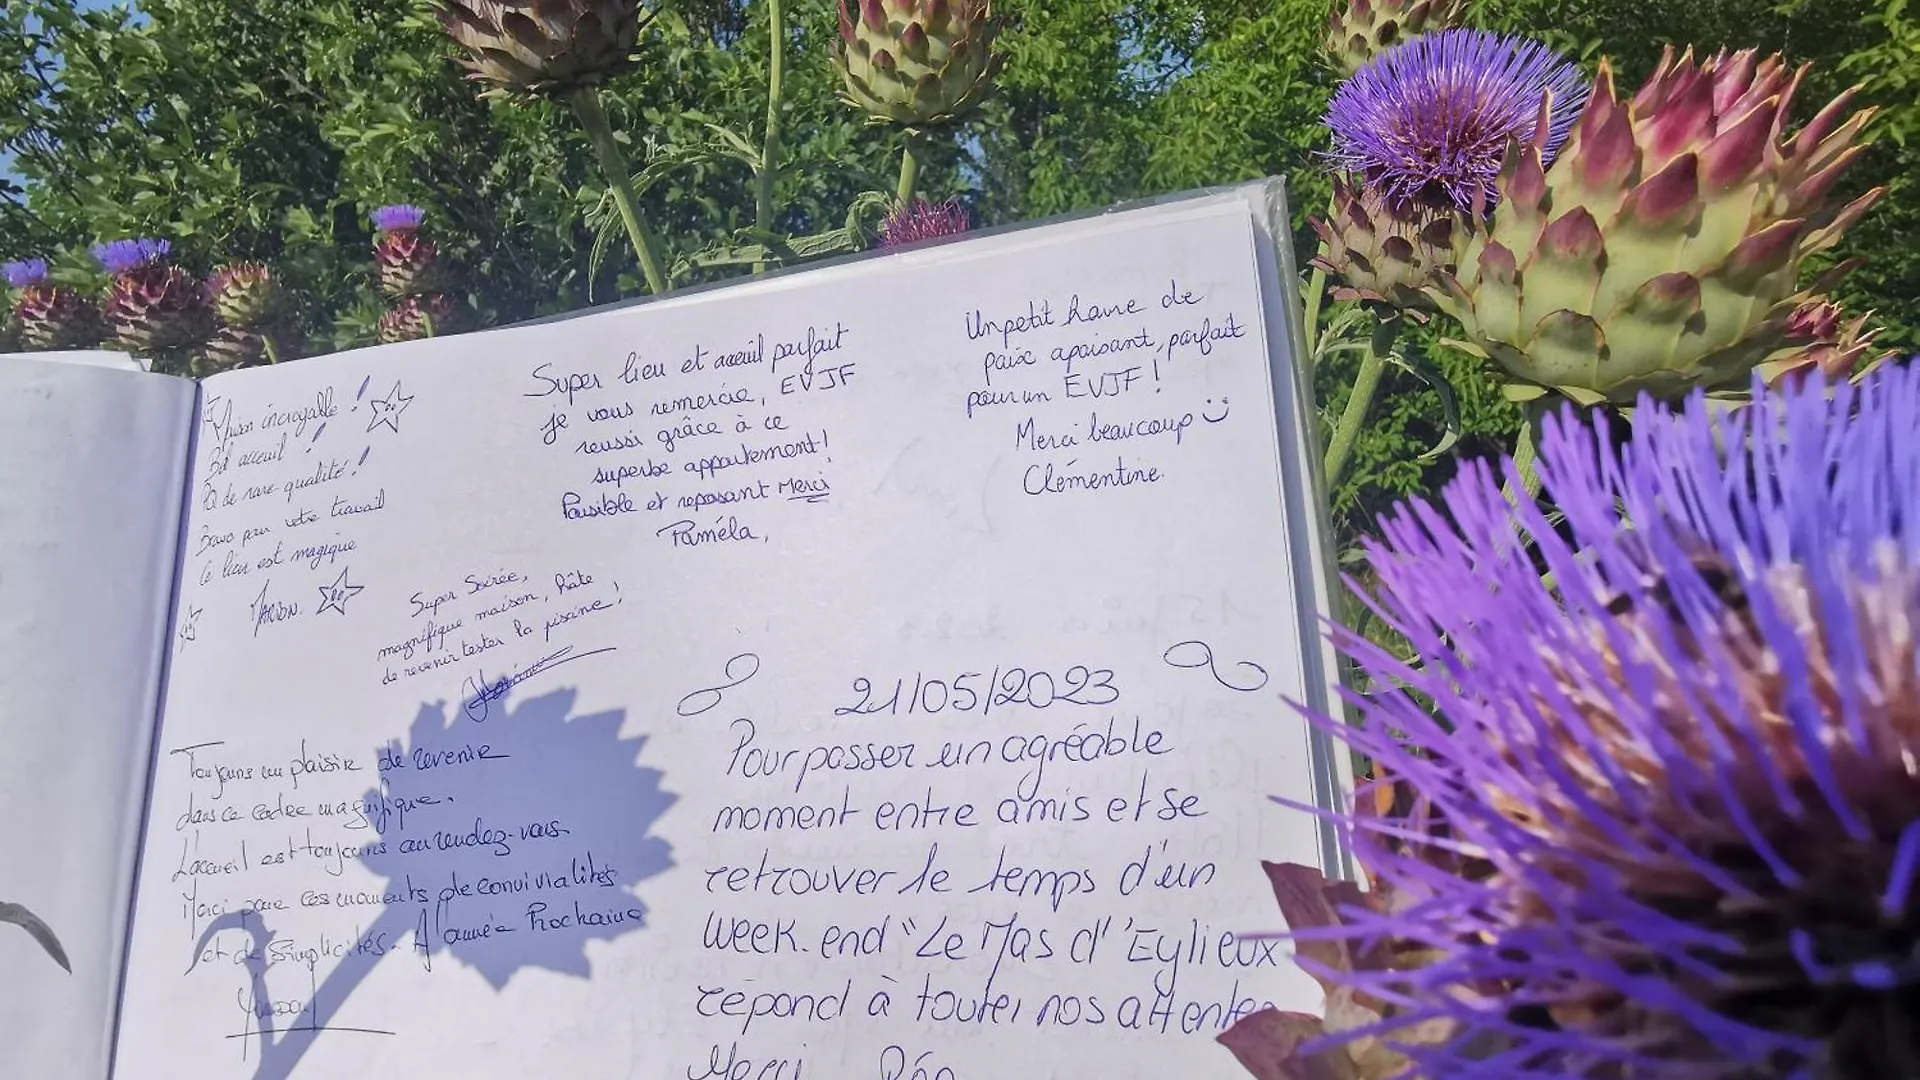 Maison incroyable !
Bel acceuil !
de rare qualité !
Bravo pour votre travail
Ce lieu est magique
MARION.
Super lieu et acceuil parfait
je vous remercie, EVJF
reussi grâce à ce
superbe appartement !
Paisible et reposant Merci
Paméla,
Un petit havre de
paix apaisant, parfait
pour un EVJF !
Merci beaucoup
Clémentine.
Super Soirée,
magnifique maison, hâte
de revenir tester la piscine !
Toujours un plaisir de revenir
dans ce cadre magnifique.
L'accueil est toujours au rendez-vous.
Merci pour ces moments de convivialités
et de simplicités. A l'année Prochaine
21/05/2023
Pour passer un agréable
moment entre amis et se
retrouver le temps d'un
week-end "Le Mas d'Eylieux
répond à toutes nos attentes
Merci